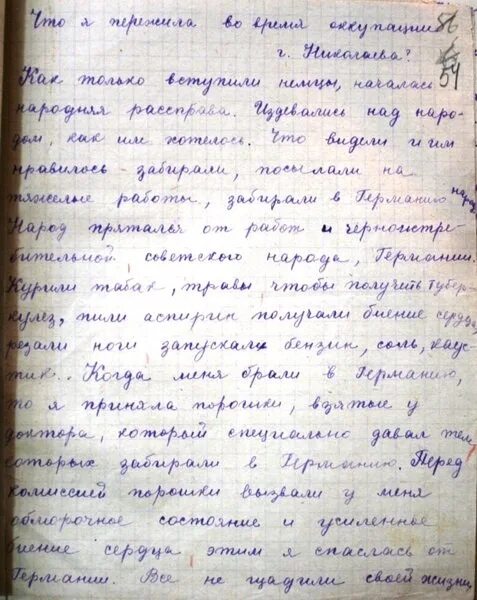 Что я пережила во время оккупации 86
г. Николаева? 54
Как только вступили немцы, началась
народняя расправа. Издевались над наро-
дом, как им хотелось. Что видели и им
нравилось - забирали, посылали на
тяжелые работы, забирали в Германию народ
Народ прятался от работ и черноистре-
бительной советского народа, Германии.
Курили табак, травы чтобы получить тубер-
кулез, пили аспирин получали биение сердца,
резали ноги запускали бензин, соль, каус-
тик.. Когда меня брали в Германию,
то я приняла порошки, взятые у
доктора, который специально давал тем
которых забирали в Германию. Перед
комиссией порошки вызвали у меня
обморочное состояние и усиленное
биение сердца этим я спаслась от
Германии. Все не щадили своей жизни